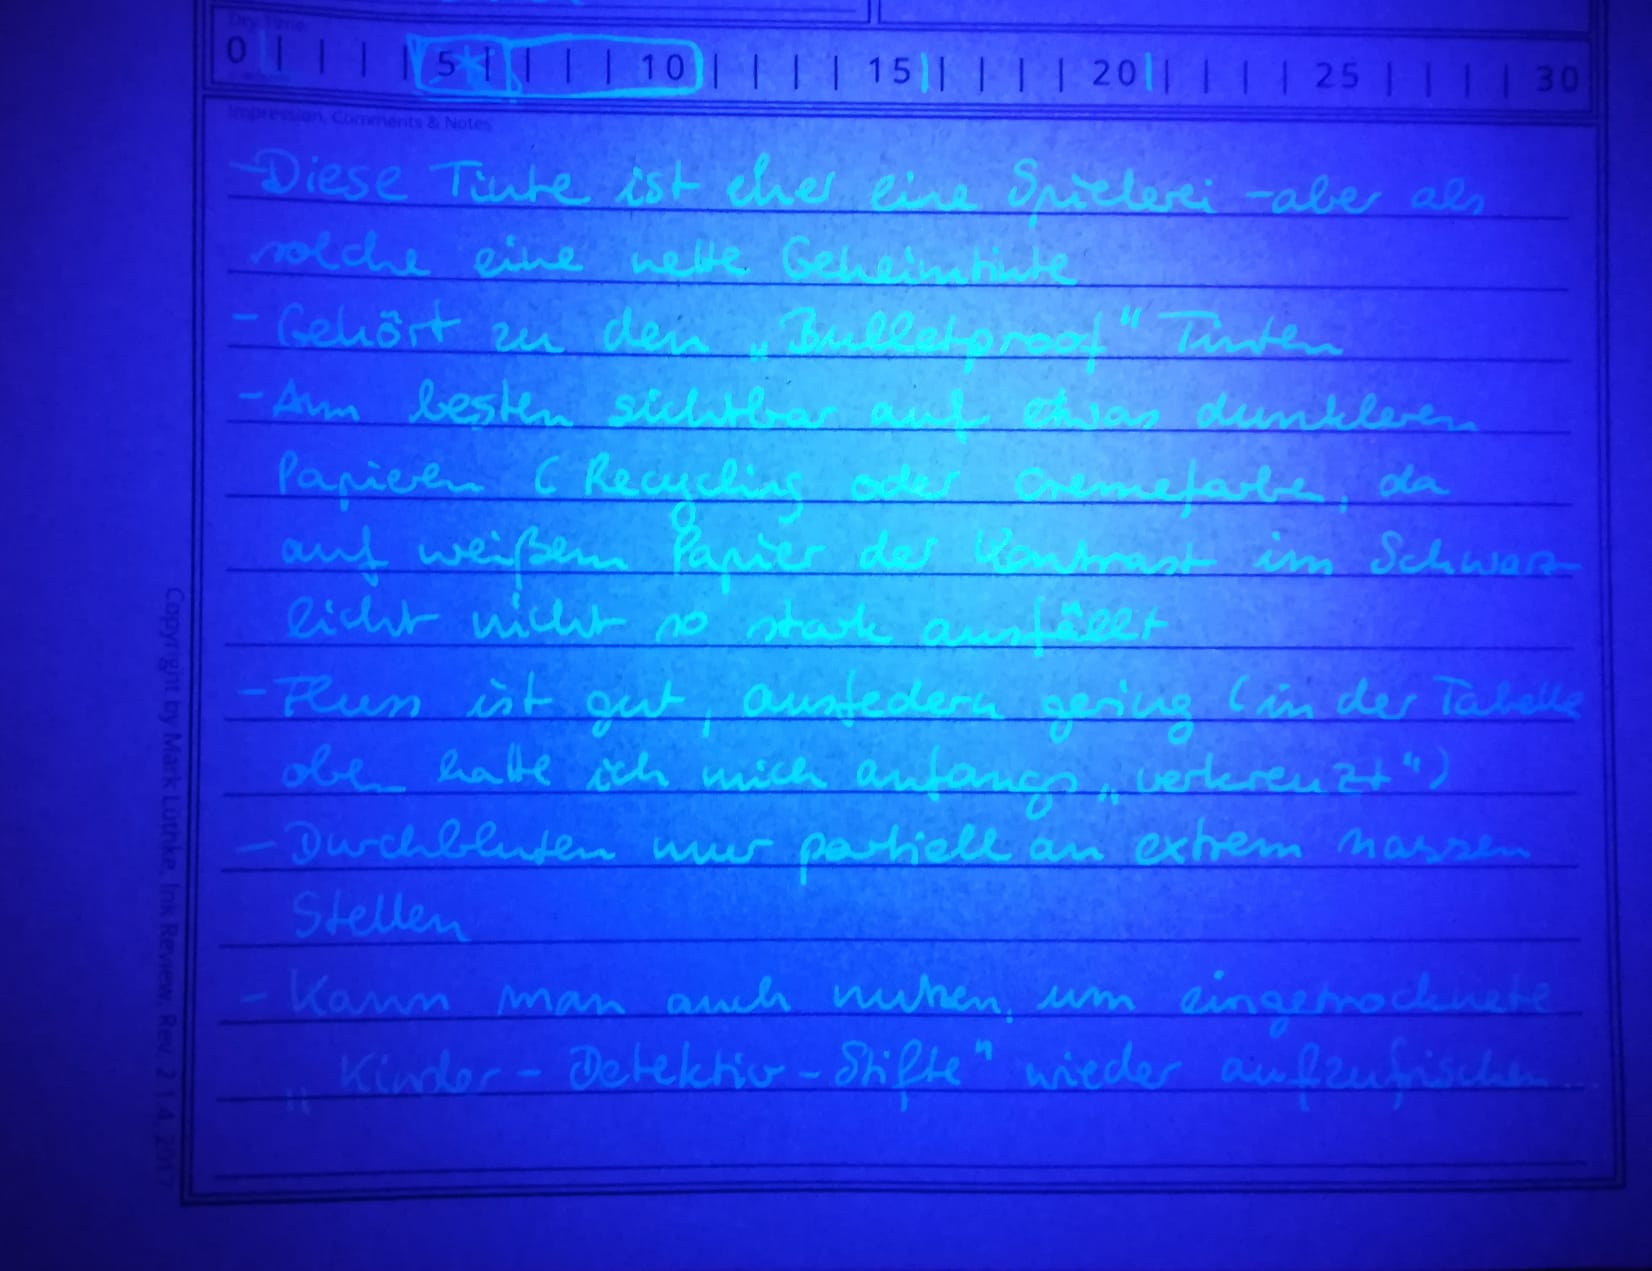 Dry Time
0 | | | | 5 | | | | 10 | | | | 15 | | | | 20 | | | | 25 | | | | 30
Impression, Comments & Notes
- Diese Tinte ist eher eine Spielerei - aber als
solche eine nette Geheimtinte
- Gehört zu den „Bulletproof" Tinten
- Am besten sichtbar auf etwas dunkleren
Papieren (Recycling oder cremefarben, da
auf weißem Papier der Kontrast im Schwarz-
licht nicht so stark ausfällt
- Fluss ist gut, ausfedern gering (in der Tabelle
oben hatte ich mich anfangs „verkreuzt")
- Durchbluten nur partiell an extrem nassen
Stellen
- Kann man auch nutzen, um eingetrocknete
„Kinder-Detektiv-Stifte" wieder aufzufrischen...
Copyright by Mark Lüthke, Ink Review Rev. 2.1.4, 2017